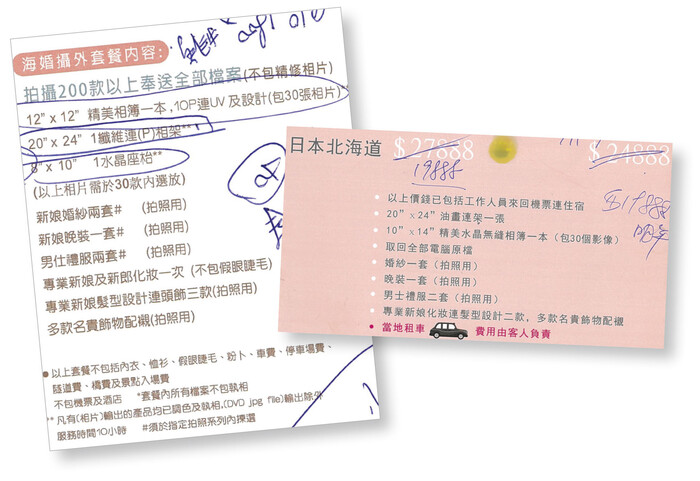 海婚攝外套餐內容:
拍攝200款以上奉送全部檔案(不包精修相片)
12" x 12" 精美相簿一本,10P連UV及設計(包30張相片)**
20" x 24" 1纖維連(P)相架**
8" x 10" 1水晶座枱**
(以上相片需於30款內選放)
新娘婚紗兩套# (拍照用)
新娘晚裝一套# (拍照用)
男仕禮服兩套# (拍照用)
專業新娘及新郎化妝一次 (不包假眼睫毛)
專業新娘髮型設計連頭飾三款(拍照用)
多款名貴飾物配襯(拍照用)
● 以上套餐不包括內衣、恤衫、假眼睫毛、粉卜、車費、停車場費、
隧道費、橋費及景點入場費
不包機票及酒店 *套餐內所有檔案不包執相
** 凡有(相片)輸出的產品均已調色及執相,(DVD jpg file)輸出除外
服務時間10小時 #須於指定拍照系列內揀選
日本北海道 $27888 $24888
19888
$17888
• 以上價錢已包括工作人員來回機票連住宿
• 20"x24"油畫連架一張
• 10"x14"精美水晶無縫相簿一本(包30個影像)
• 取回全部電腦原檔
• 婚紗一套(拍照用)
• 晚裝一套(拍照用)
• 男士禮服二套(拍照用)
• 專業新娘化妝連髮型設計二款,多款名貴飾物配襯
• 當地租車 費用由客人負責